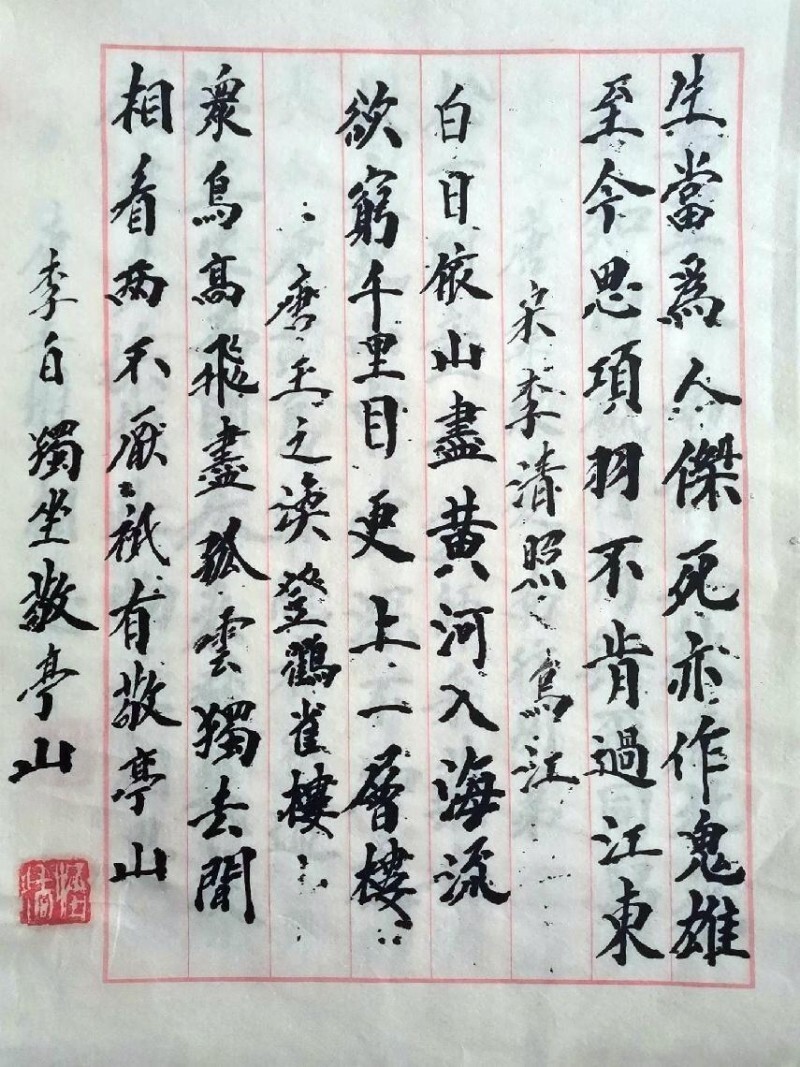 生當爲人傑死亦作鬼雄
至今思項羽不肯過江東
宋李清照烏江
白日依山盡黃河入海流
欲窮千里目更上一層樓
唐王之渙登鸛雀樓
衆鳥高飛盡孤雲獨去閒
相看兩不厭祇有敬亭山
李白獨坐敬亭山